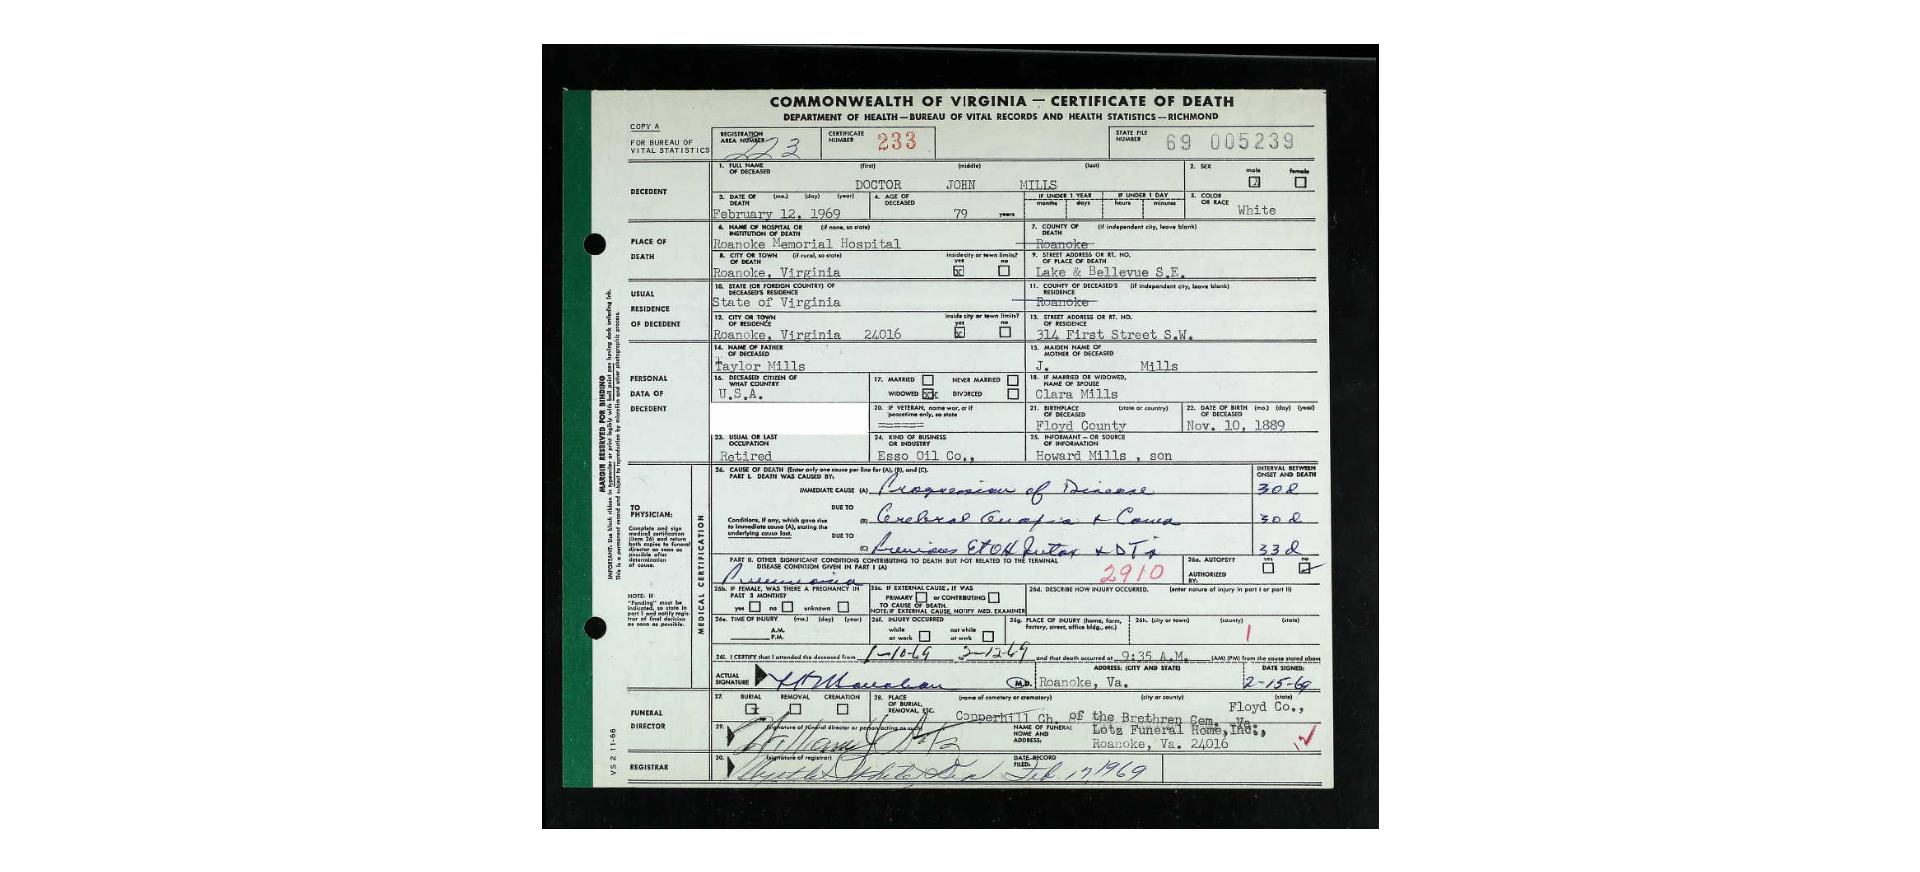 COMMONWEALTH OF VIRGINIA — CERTIFICATE OF DEATH
DEPARTMENT OF HEALTH—BUREAU OF VITAL RECORDS AND HEALTH STATISTICS—RICHMOND
COPY A
FOR BUREAU OF VITAL STATISTICS
REGISTRATION AREA NUMBER 223
CERTIFICATE NUMBER 233
STATE FILE NUMBER 69 005239
DECEDENT
1. FULL NAME OF DECEASED (first) (middle) (last)
DOCTOR JOHN MILLS
2. SEX male female
3. DATE OF DEATH (mo.) (day) (year)
February 12, 1969
4. AGE OF DECEASED
79 years
IF UNDER 1 YEAR months days
IF UNDER 1 DAY hours minutes
5. COLOR OR RACE
White
PLACE OF DEATH
6. NAME OF HOSPITAL OR INSTITUTION OF DEATH (if none, so state)
Roanoke Memorial Hospital
7. COUNTY OF DEATH (if independent city, leave blank)
Roanoke
8. CITY OR TOWN OF DEATH (if rural, so state)
inside city or town limits? yes no
Roanoke, Virginia x
9. STREET ADDRESS OR RT. NO. OF PLACE OF DEATH
Lake & Bellevue S.E.
USUAL RESIDENCE OF DECEDENT
10. STATE (OR FOREIGN COUNTRY) OF DECEASED'S RESIDENCE
State of Virginia
11. COUNTY OF DECEASED'S RESIDENCE (if independent city, leave blank)
Roanoke
12. CITY OR TOWN OF RESIDENCE
inside city or town limits? yes no
Roanoke, Virginia 24016 x
13. STREET ADDRESS OR RT. NO. OF RESIDENCE
314 First Street S.W.
PERSONAL DATA OF DECEDENT
14. NAME OF FATHER OF DECEASED
Taylor Mills
15. MAIDEN NAME OF MOTHER OF DECEASED
J. Mills
16. DECEASED CITIZEN OF WHAT COUNTRY
U.S.A.
17. MARRIED NEVER MARRIED
WIDOWED xx DIVORCED
18. IF MARRIED OR WIDOWED, NAME OF SPOUSE
Clara Mills
20. IF VETERAN, name war, or if peacetime only, so state
======
21. BIRTHPLACE OF DECEASED (state or country)
Floyd County
22. DATE OF BIRTH (mo.) (day) (year) OF DECEASED
Nov. 10, 1889
23. USUAL OR LAST OCCUPATION
Retired
24. KIND OF BUSINESS OR INDUSTRY
Esso Oil Co.,
25. INFORMANT — OR SOURCE OF INFORMATION
Howard Mills , son
MARGIN RESERVED FOR BINDING
TO PHYSICIAN:
Complete and sign medical certification (item 26) and return both copies to funeral director as soon as possible after determination of cause.
NOTE: If "Pending" must be indicated, so state in part I and notify registrar of final decision as soon as possible.
MEDICAL CERTIFICATION
26. CAUSE OF DEATH (Enter only one cause per line for (A), (B), and (C).
PART I. DEATH WAS CAUSED BY:
INTERVAL BETWEEN ONSET AND DEATH
IMMEDIATE CAUSE (A) Progression of Disease 30d
DUE TO
Conditions, if any, which gave rise to immediate cause (A), stating the underlying cause last.
(B) Cerebral Anoxia & Coma 30d
DUE TO
(C) Previous EtOH Intox & DT's 33d
PART II. OTHER SIGNIFICANT CONDITIONS CONTRIBUTING TO DEATH BUT NOT RELATED TO THE TERMINAL DISEASE CONDITION GIVEN IN PART I (A)
Pneumonia 2910
26a. AUTOPSY? yes no
AUTHORIZED BY:
26b. IF FEMALE, WAS THERE A PREGNANCY IN PAST 3 MONTHS?
yes no unknown
26c. IF EXTERNAL CAUSE, IT WAS
PRIMARY or CONTRIBUTING
TO CAUSE OF DEATH.
NOTE: IF EXTERNAL CAUSE, NOTIFY MED. EXAMINER
26d. DESCRIBE HOW INJURY OCCURRED. (enter nature of injury in part I or part II)
26e. TIME OF INJURY (mo.) (day) (year)
A.M.
P.M.
26f. INJURY OCCURRED
while at work not while at work
26g. PLACE OF INJURY (home, farm, factory, street, office bldg., etc.)
26h. (city or town) (county) (state)
1
26i. I CERTIFY that I attended the deceased from 1-10-69 2-12-69 and that death occurred at 9:35 A.M. (AM) (PM) from the cause stated above
ACTUAL SIGNATURE M.D.
ADDRESS: (CITY AND STATE)
Roanoke, Va.
DATE SIGNED:
2-15-69
FUNERAL DIRECTOR
27. BURIAL REMOVAL CREMATION
x
28. PLACE OF BURIAL, REMOVAL, ETC.
(name of cemetery or crematory) (city or county) (state)
Floyd Co.,
Copperhill Ch. of the Brethren Cem. Va.
29. (signature of funeral director or person acting as such)
NAME OF FUNERAL HOME AND ADDRESS:
Lotz Funeral Home, Inc.,
Roanoke, Va. 24016
REGISTRAR
30. (signature of registrar)
DATE RECORD FILED:
Feb 17, 1969
VS 2 11-66